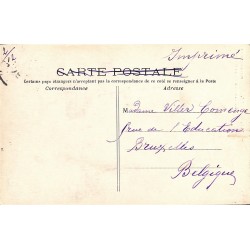 Imprimé
CARTE POSTALE
Certains pays étrangers n'acceptant pas la correspondance de ce côté se renseigner à la Poste
Correspondance
Adresse
Madame
rue de l'Education
Bruxelles
Belgique